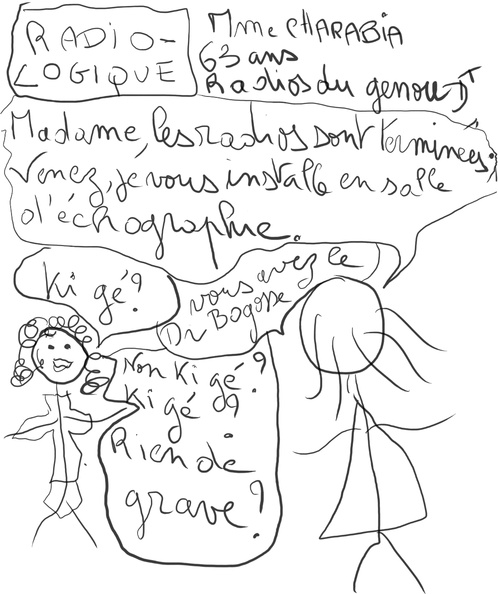 RADIO-
LOGIQUE
Mme CHARABIA
63 ans
Radios du genou Dt
Madame, les radios sont terminées;
Venez, je vous installe en salle
d'échographie.
Ki gé?
vous avez le
Dr Bogosse
Non Ki gé?
Ki gé ??
Rien de
grave?